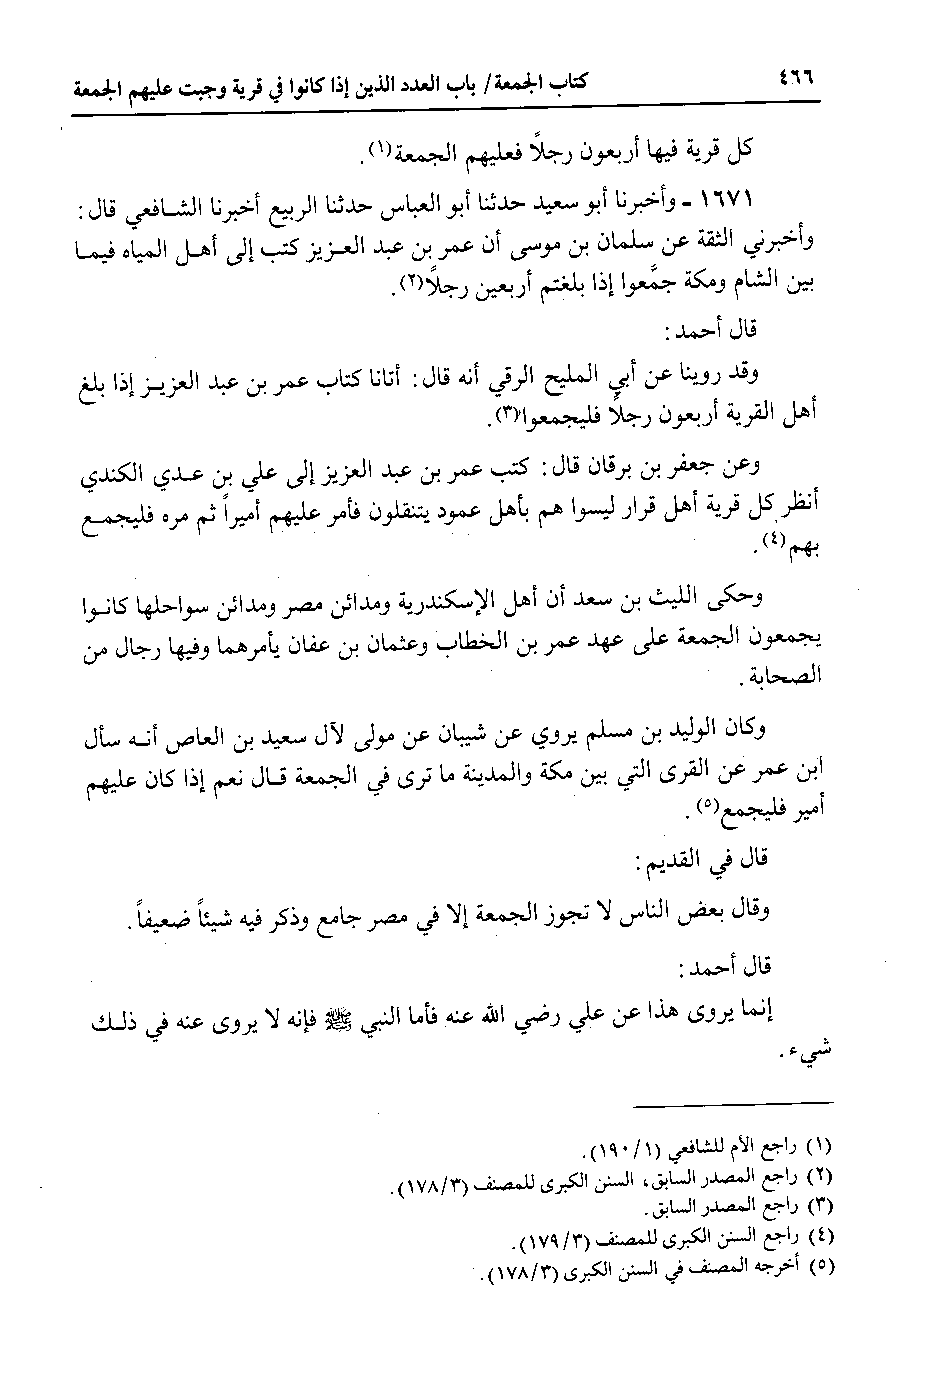 ٤٦٦
كتاب الجمعة/ باب العدد الذين إذا كانوا في قرية وجبت عليهم الجمعة
كل قرية فيها أربعون رجلاً فعليهم الجمعة(١).
١٦٧١ - وأخبرنا أبو سعيد حدثنا أبو العباس حدثنا الربيع أخبرنا الشافعي قال:
وأخبرني الثقة عن سلمان بن موسى أن عمر بن عبد العزيز كتب إلى أهل المياه فيما
بين الشام ومكة جمَّعوا إذا بلغتم أربعين رجلاً(٢).
قال أحمد:
وقد روينا عن أبي المليح الرقي أنه قال: أتانا كتاب عمر بن عبد العزيز إذا بلغ
أهل القرية أربعون رجلاً فليجمعوا(٣).
وعن جعفر بن برقان قال: كتب عمر بن عبد العزيز إلى علي بن عدي الكندي
أنظر كل قرية أهل قرار ليسوا هم بأهل عمود يتنقلون فأمر عليهم أميراً ثم مره فليجمع
بهم(٤).
وحكى الليث بن سعد أن أهل الإسكندرية ومدائن مصر ومدائن سواحلها كانوا
يجمعون الجمعة على عهد عمر بن الخطاب وعثمان بن عفان يأمرهما وفيها رجال من
الصحابة.
وكان الوليد بن مسلم يروي عن شيبان عن مولى لآل سعيد بن العاص أنه سأل
ابن عمر عن القرى التي بين مكة والمدينة ما ترى في الجمعة قال نعم إذا كان عليهم
أمير فليجمع(٥).
قال في القديم:
وقال بعض الناس لا تجوز الجمعة إلا في مصر جامع وذكر فيه شيئاً ضعيفاً.
قال أحمد:
إنما يروى هذا عن علي رضي الله عنه فأما النبي ﷺ فإنه لا يروى عنه في ذلك
شيء.
(١) راجع الأم للشافعي (١/ ١٩٠).
(٢) راجع المصدر السابق، السنن الكبرى للمصنف (٣/ ١٧٨).
(٣) راجع المصدر السابق.
(٤) راجع السنن الكبرى للمصنف (٣/ ١٧٩).
(٥) أخرجه المصنف في السنن الكبرى (٣/ ١٧٨).